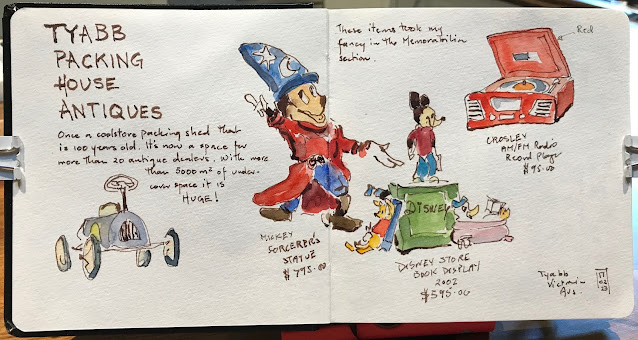 TYABB
PACKING
HOUSE
ANTIQUES
Once a coolstore packing shed that
is 100 years old. It's now a space for
more than 20 antique dealers. With more
than 5000m² of under-
cover space it is
HUGE!
MICKEY
SORCERER'S
STATUE
$795.00
These items took my
fancy in the Memorabilia
section.
Red
CROSLEY
AM/FM Radio
Record Player
$95.00
DISNEY
DISNEY STORE
BOOK DISPLAY
2002
$595.00
Tyabb
Victoria
Aus.
17
02
23